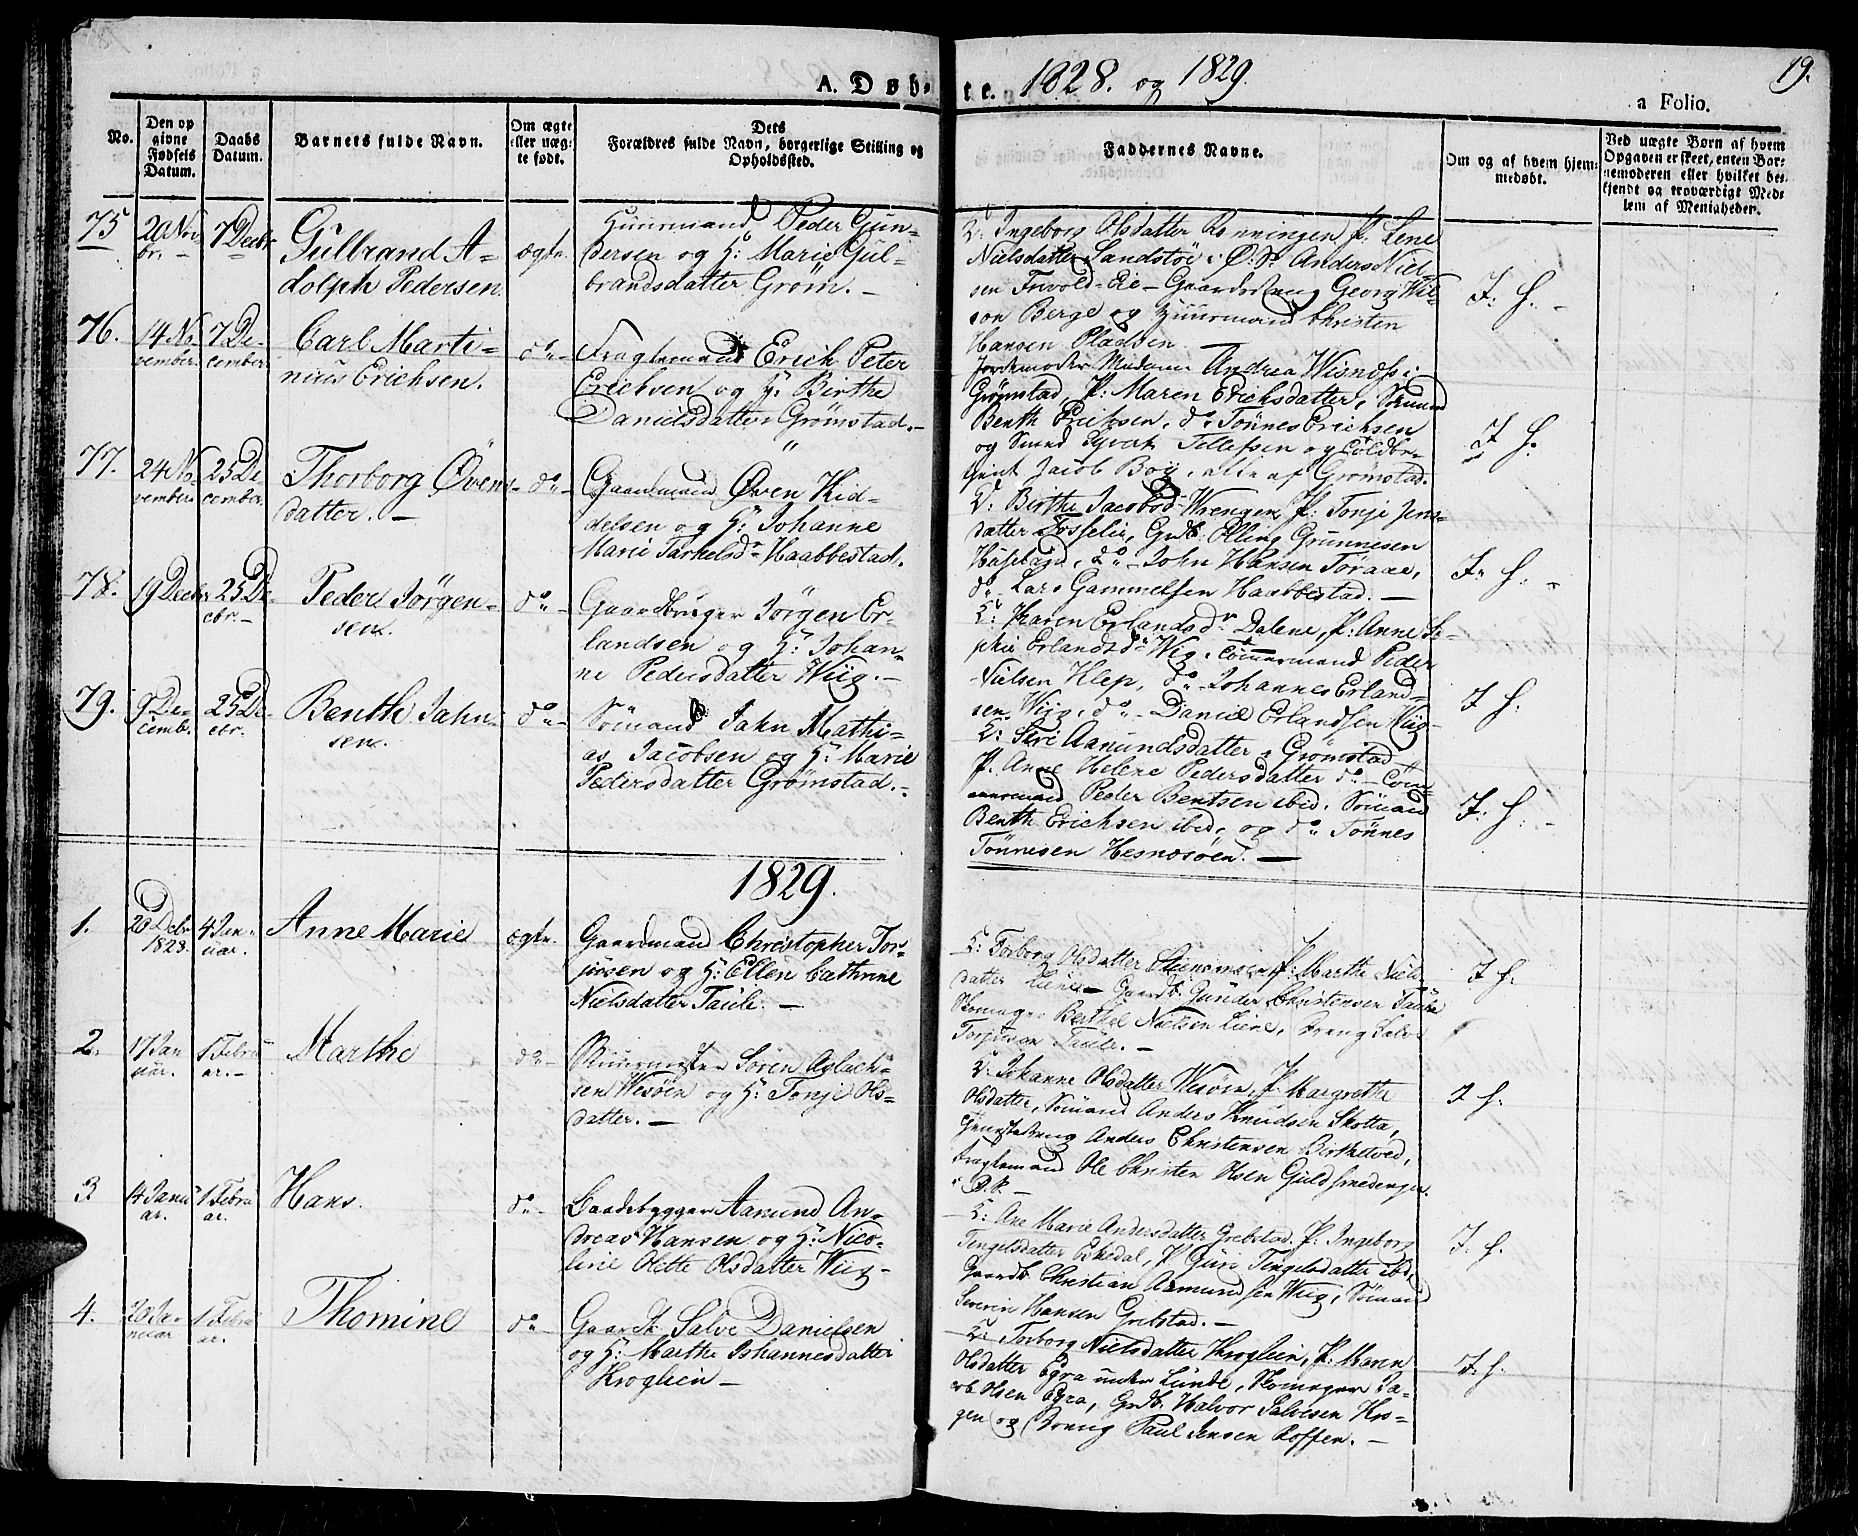 A. Døbte. 1828. og 1829.
19.
a Folio.
No.
Den op
givne
Fødsels
Datum.
Daabs
Datum.
Barnets fulde Navn.
Om ægte
eller uæg-
te født.
Dets
Forældres fulde Navn, borgerlige Stilling og
Opholdssted.
Faddernes Navne.
Om og af hvem hjem-
medøbt.
Ved uægte Børn af hvem
Opgaven er skeet, enten Bar-
nemoderen eller hvilket be-
kjendt og troværdigt Med-
lem af Menigheder.
75
20 Nov
br.
7 Decbr
Gulbrand A-
dolph Pedersen.
ægte.
Huusmand Peder Gun-
dersen og H: Marie Gul-
brandsdatter Grøm. -
Ingeborg Olsdatter Rønningen P. Lene
Nielsdatter Landstøe i Ø. S. Anders Niel-
sen Frivold-Eie - Gaardsdreng Georg
son Berge og Huusmand Christen
Hansen Pladsen. -
I. H. -
76.
14 No
vember
7 De-
cember
Carl Marti-
nius Erichsen.
do -
Fragtemand Erich Peter
Erichsen og H: Birthe
Danielsdatter Grømstad. -
Jordemoder Madame Andrea
Grømstad, P: Maren Erichsdatter, Sømand
Benth Erichsen, do Tønnes Erichsen
og Smed Syvert Tellefsen og Toldbe-
tient Jacob Boÿ, alle af Grømstad.
I H.
77.
24 No
vember
25 De
cember.
Thorborg Øvens-
datter. -
do -
Gaardmand Øven Kid-
delsen og H: Johanne
Marie Tarkelsdr Haabbestad.
Birthe Jacobsd Wrengen, P. Tonje Jens-
datter Fosselie, Grdb. Elling Grunnesen
do John Hansen Toraae,
do Lars Gammelsen Haabbestad. -
I. H. -
78.
19 Decbr
25 De-
cbr. -
Peder Jörgen-
sen.
do -
Gaardbruger Jörgen Er-
landsen og H: Johan-
ne Pedersdatter Wiig. -
Karen Erlandsdr Dalene, P: Anne So-
phie Erlandsdr Wig, Tömmermand Peder
Nielsen Klep, do Johannes Erland-
sen Wiig, do - Daniel Erlandsen Wiig -
I H.
79.
9 De-
cemb.
25 De-
cbr.
Benth Jahn-
sen.
do -
Sømand Jahn Mathi-
as Jacobsen og H: Marie
Pedersdatter Grømstad. -
Siri Aanundsdatter Grømstad -
P. Anne Helene Pedersdatter do - Töm-
mermand Peder Bentsen ibid. Sømand
Benth Erichsen ibid, og do Tönnes
Tönnesen Hesnæsöen. -
I. H. -
1829.
1.
20 Debr
1828.
4 Jan-
uar.
Anne Marie
ægte.
Gaardmand Christopher Tor-
jusen og H: Ellen Cathrine
Nielsdatter Taule. -
Torborg Olsdatter P. Marthe Niels-
datter Liene - Gaardb. Gunder Christensen Taule
Skomager Berthel Nielsen Liene, Dreng Salve
Torjusen Taule. -
I H.
2.
17 Jan
uar.
1 Febru
ar. -
Marthe
do -
Muurmester Sören Aslach-
sen Wesöen og H: Tonje Ols-
datter. -
Johanne Olsdatter Wesöen, P. Margrethe
Olsdatter, Sømand Anders Knudsen Skotta,
Anders Christensen Birkelved,
Fragtemand Ole Christen Olsen Guldsmedengen
I H.
3
14 Janu
ar.
1 Febru
ar.
Hans.
do -
Baadebygger Aamund An-
dreas Hansen og H: Nico-
line Olette Olsdatter Wiig -
Ane Marie Andersdatter Grebstad. P. Ingeborg
Tengelsdatter Eskedal, P. Guri Tengelsdatter ibd,
Gaardb. Christian Aamundsen Wiig, Sømand
Severin Hansen Grebstad. -
I. H.
4.
20 Ja-
nuar
1 Febru
ar.
Thomine
do -
Gaardb. Salve Danielsen
og H: Marthe Johannesdatter
Kroglien -
Torborg Nielsdatter Kroglien, P. Maren
Olsdatter Egra under Lunde, Skomager Ja-
cob Olsen Egra, Grdb. Halvor Salvesen Kro-
gen og Dreng Paul Jensen Roffen. -
I. H.